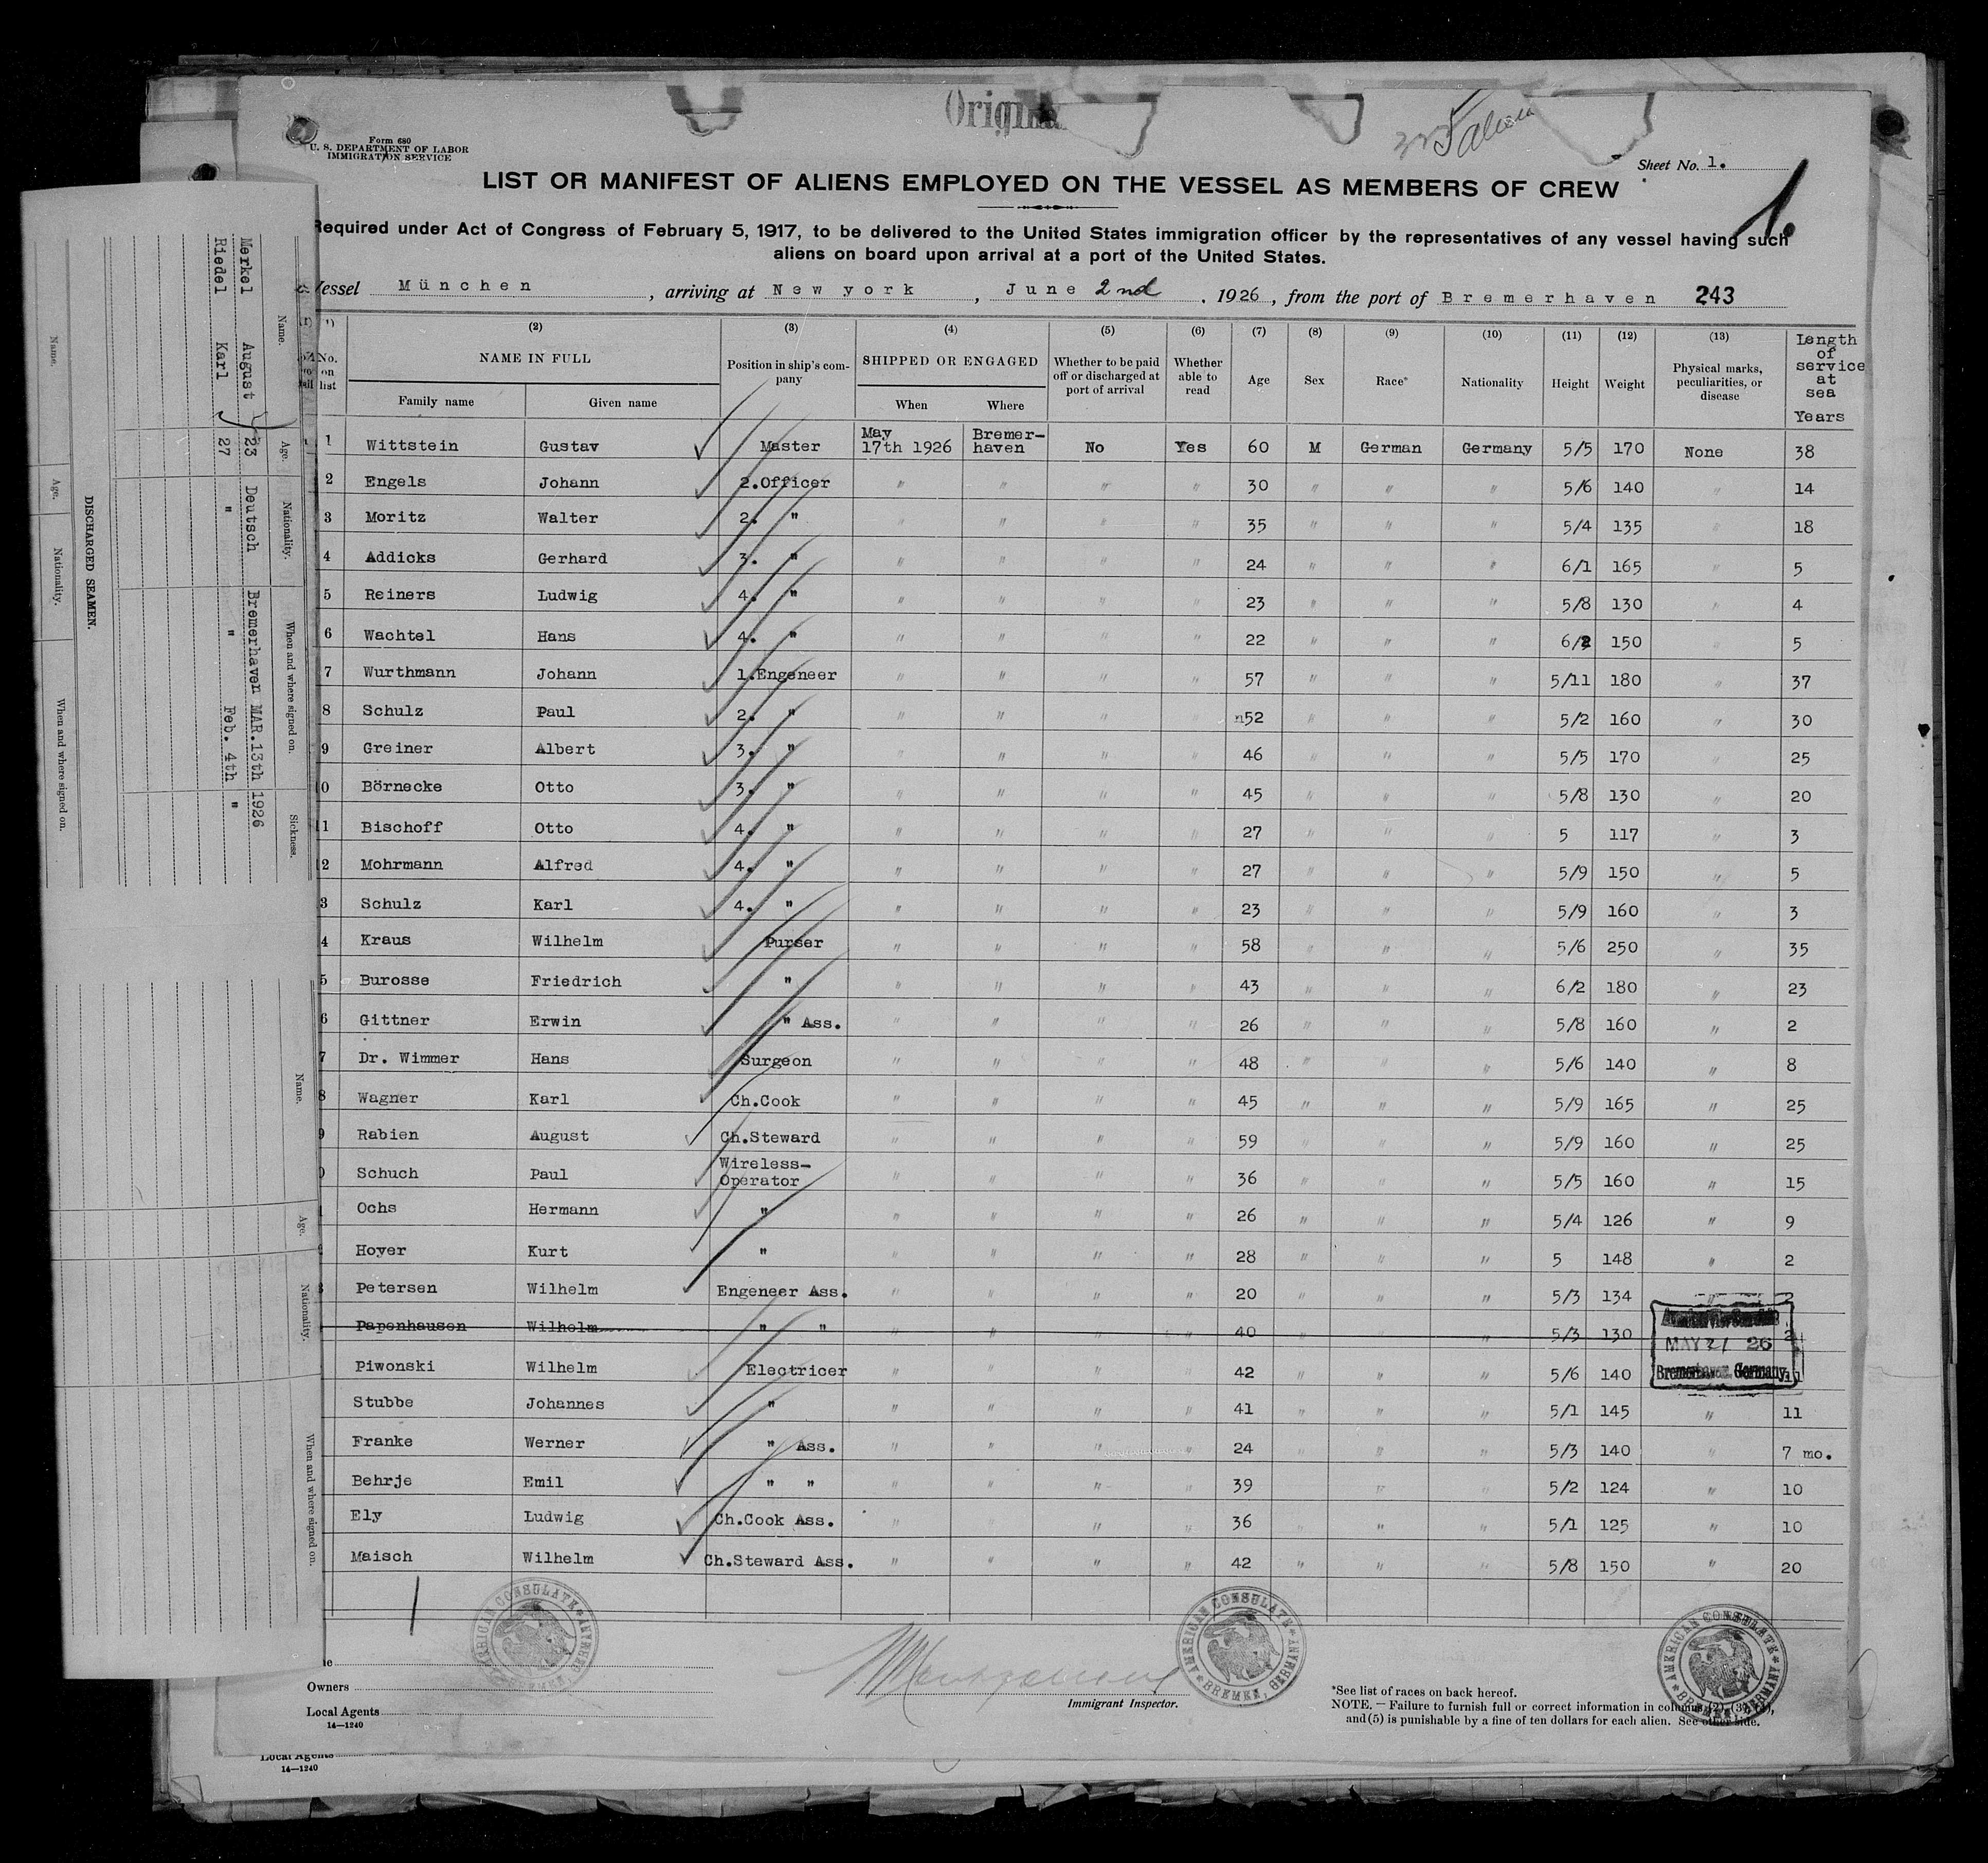 Original
Form 680
U. S. DEPARTMENT OF LABOR
IMMIGRATION SERVICE
Sheet No. 1.
LIST OR MANIFEST OF ALIENS EMPLOYED ON THE VESSEL AS MEMBERS OF CREW
1.
Required under Act of Congress of February 5, 1917, to be delivered to the United States immigration officer by the representatives of any vessel having such
aliens on board upon arrival at a port of the United States.
Vessel München, arriving at New york, June 2nd, 1926, from the port of Bremerhaven 243
(2) (3) (4) (5) (6) (7) (8) (9) (10) (11) (12) (13)
No. on list NAME IN FULL Position in ship's company SHIPPED OR ENGAGED Whether to be paid off or discharged at port of arrival Whether able to read Age Sex Race* Nationality Height Weight Physical marks, peculiarities, or disease Length of service at sea Years
Family name Given name When Where
1 Wittstein Gustav Master May 17th 1926 Bremer-haven No Yes 60 M German Germany 5/5 170 None 38
2 Engels Johann 2.Officer " " " " 30 " " " 5/6 140 " 14
3 Moritz Walter 2. " " " " " 35 " " " 5/4 135 " 18
4 Addicks Gerhard 3. " " " " " 24 " " " 6/1 165 " 5
5 Reiners Ludwig 4. " " " " " 23 " " " 5/8 130 " 4
6 Wachtel Hans 4. " " " " " 22 " " " 6/2 150 " 5
7 Wurthmann Johann 1.Engeneer " " " " 57 " " " 5/11 180 " 37
8 Schulz Paul 2. " " " " " 52 " " " 5/2 160 " 30
9 Greiner Albert 3. " " " " " 46 " " " 5/5 170 " 25
0 Börnecke Otto 3. " " " " " 45 " " " 5/8 130 " 20
1 Bischoff Otto 4. " " " " " 27 " " " 5 117 " 3
2 Mohrmann Alfred 4. " " " " " 27 " " " 5/9 150 " 5
3 Schulz Karl 4. " " " " " 23 " " " 5/9 160 " 3
4 Kraus Wilhelm Purser " " " " 58 " " " 5/6 250 " 35
5 Burosse Friedrich " " " " " 43 " " " 6/2 180 " 23
6 Gittner Erwin " Ass. " " " " 26 " " " 5/8 160 " 2
7 Dr. Wimmer Hans Surgeon " " " " 48 " " " 5/6 140 " 8
8 Wagner Karl Ch.Cook " " " " 45 " " " 5/9 165 " 25
9 Rabien August Ch.Steward " " " " 59 " " " 5/9 160 " 25
Schuch Paul Wireless-Operator " " " " 36 " " " 5/5 160 " 15
Ochs Hermann " " " " " 26 " " " 5/4 126 " 9
Hoyer Kurt " " " " " 28 " " " 5 148 " 2
Petersen Wilhelm Engeneer Ass. " " " " 20 " " " 5/3 134 " 2
Papenhausen Wilhelm " " " " " " 40 " " " 5/3 130 2
Piwonski Wilhelm Electricer " " " " 42 " " " 5/6 140
Stubbe Johannes " " " " " 41 " " " 5/1 145 " 11
Franke Werner " Ass. " " " " 24 " " " 5/3 140 " 7 mo.
Behrje Emil " " " " " " 39 " " 5/2 124 " 10
Ely Ludwig Ch.Cook Ass. " " " " 36 " " " 5/1 125 " 10
Maisch Wilhelm Ch.Steward Ass. " " " " 42 " " " 5/8 150 " 20
MAY 21 26
Bremerhaven Germany
AMERICAN CONSULATE
BREMEN, GERMANY
AMERICAN CONSULATE
BREMEN, GERMANY
AMERICAN CONSULATE
BREMEN, GERMANY
Owners
Local Agents
14—1240
Immigrant Inspector.
*See list of races on back hereof.
NOTE. — Failure to furnish full or correct information in columns (2), (3),
and (5) is punishable by a fine of ten dollars for each alien. See other side.
Local Agents
14—1240
DISCHARGED SEAMEN.
Name. Age. Nationality. When and where signed on.
Name. Age. Nationality. When and where signed on. Sickness.
Merkel August 23 Deutsch Bremerhaven MAR.13th 1926
Riedel Karl 27 " " Feb. 4th "
Name. Age. Nationality. When and where signed on.